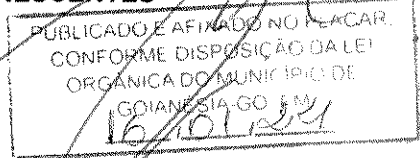 PUBLICADO E AFIXADO NO PLACAR,
CONFORME DISPOSIÇÃO DA LEI
ORGÂNICA DO MUNICÍPIO DE
GOIANESIA-GO EM
16 / 01 /